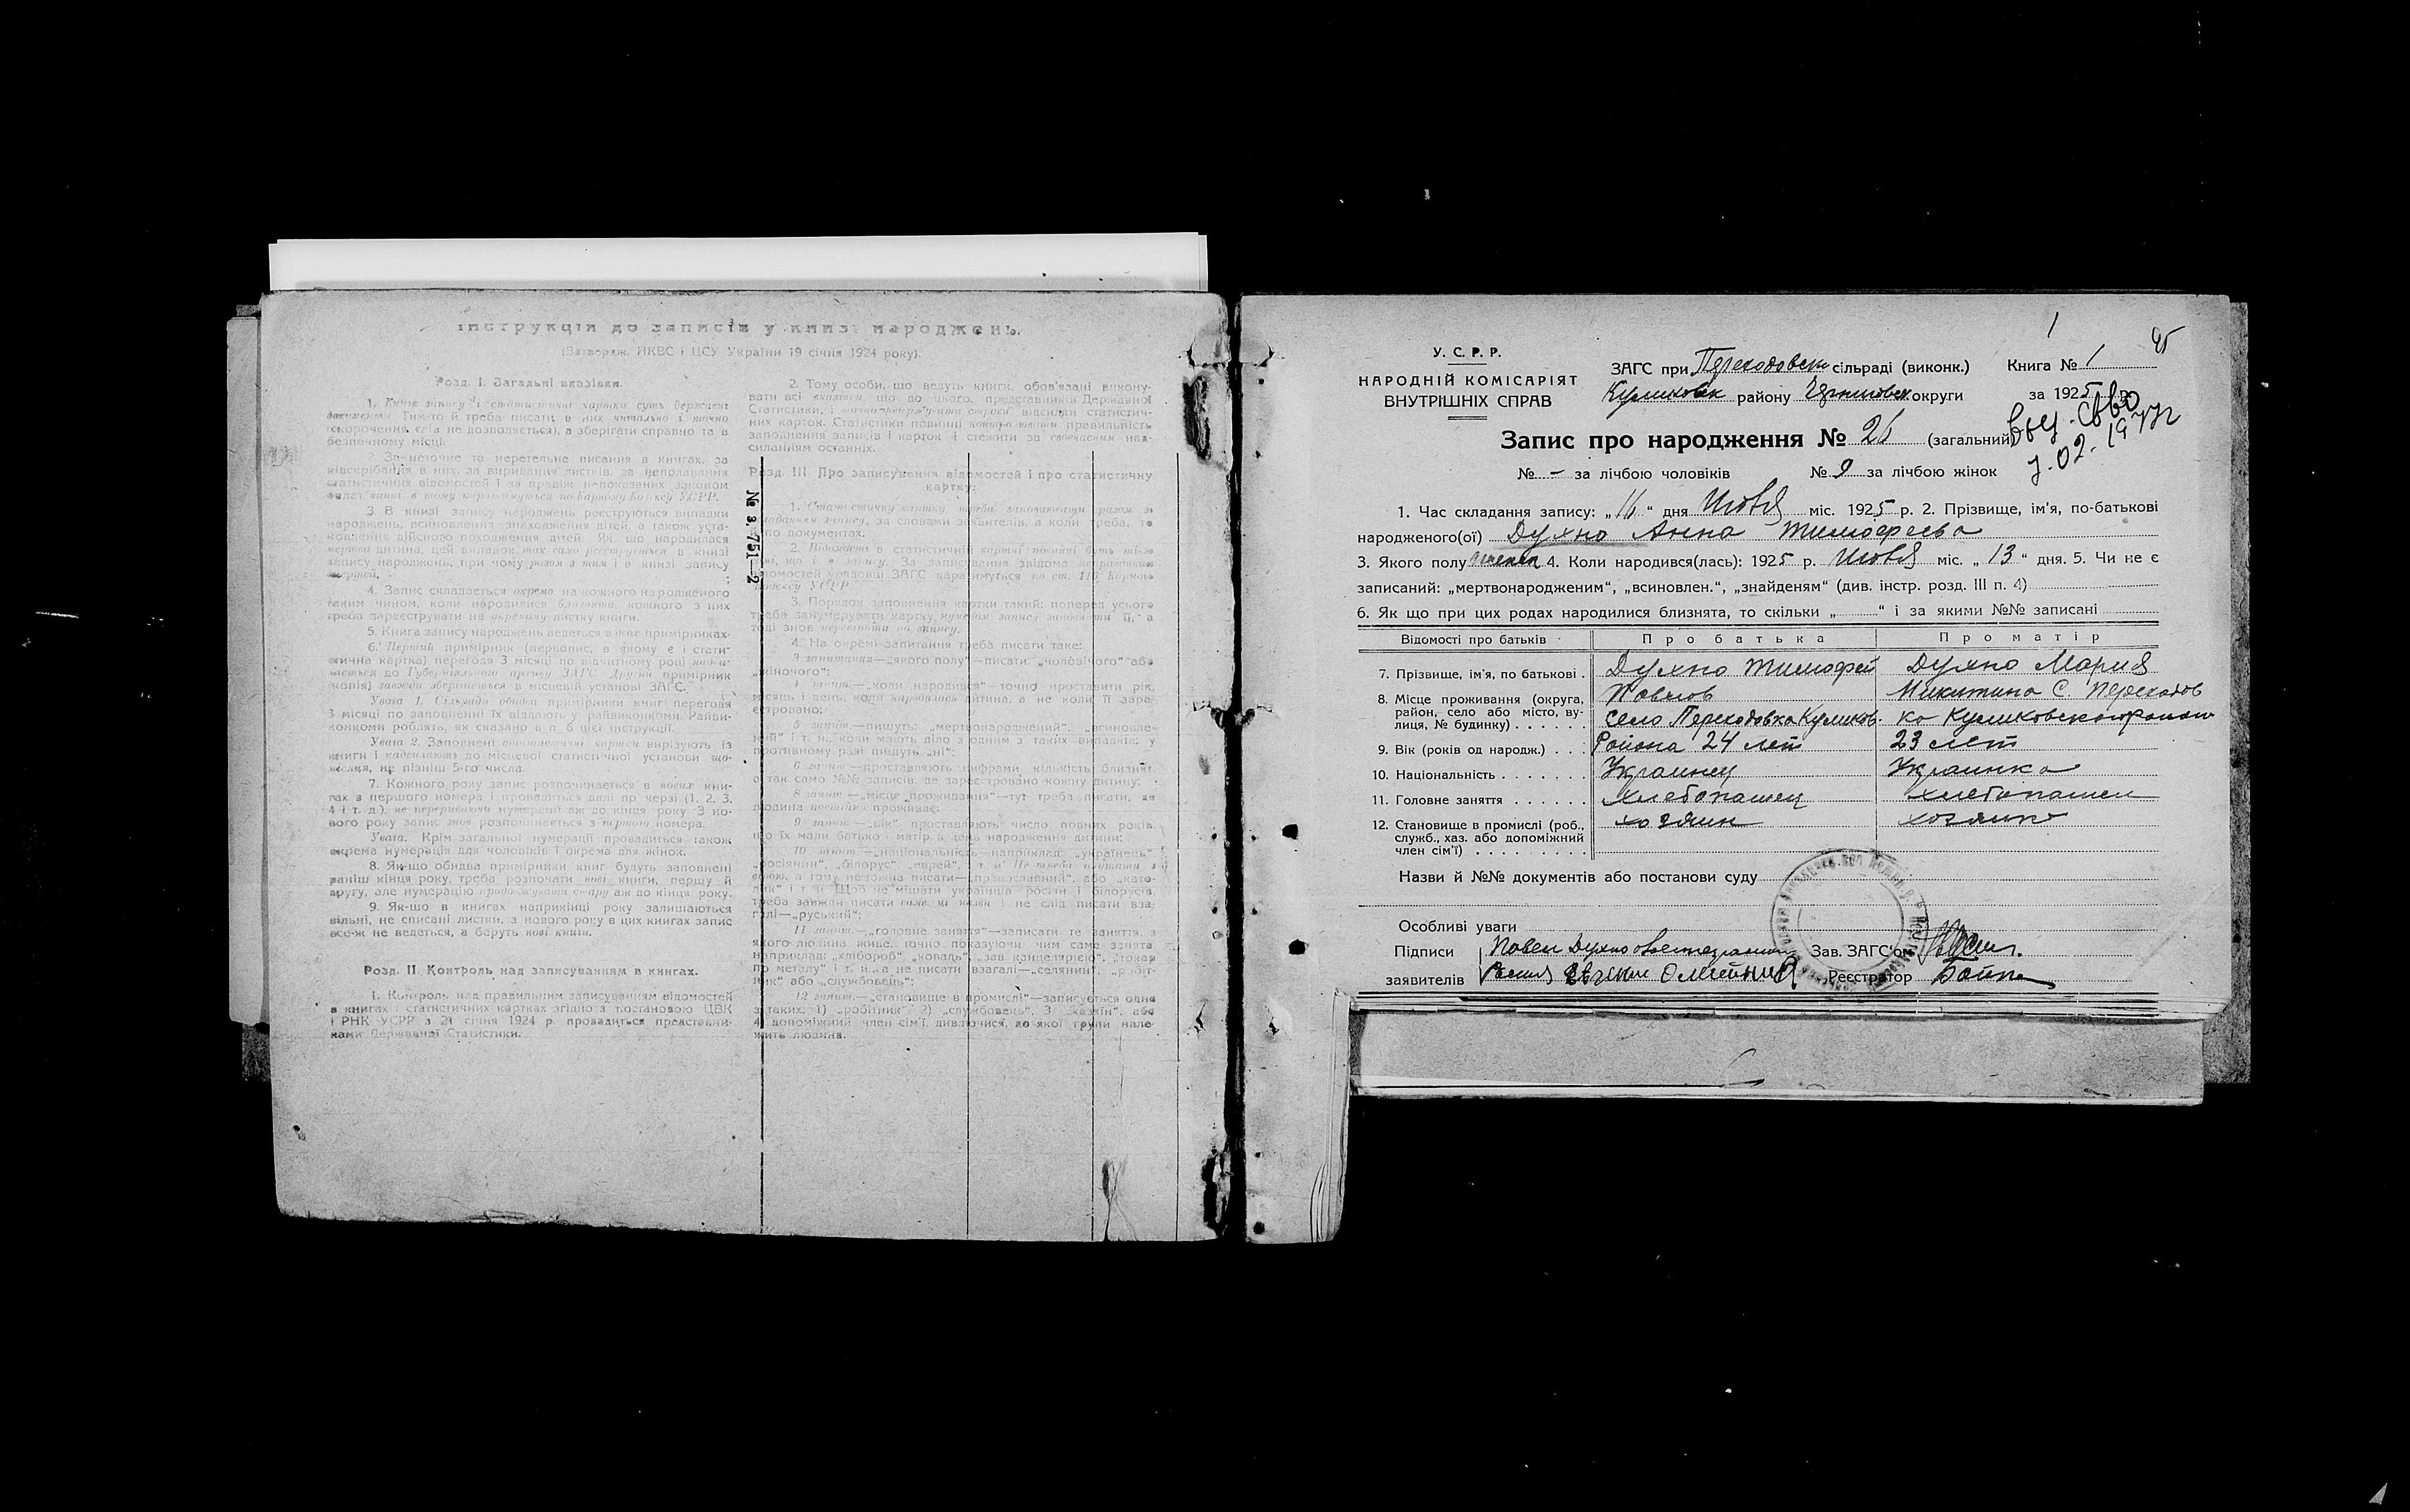 Інструкція до записів у книзі народжень.
(Затверж. НКВС і ЦСУ України 19 січня 1924 року).
Розд. I. Загальні вказівки.
1. Книги запису і статистичні картки суть державні
документи. Тим-то й треба писати в них читально і точно
(скорочення слів не дозволяється), а зберігати справно та в
безпечному місці.
2. За неточне та неретельне писання в книгах, за
вишкрібання в них, за виривання листів, за неподавання
статистичних відомостей і за
винні в тому карного Кодексу УСРР.
3. В книзі запису народжень реєструються випадки
народжень, всиновлення, знаходження дітей, а також уста-
новлення дійсного походження дітей. Як що народилася
мертва дитина, цей випадок так само реєструється в книзі
запису народжень, при чому разом з тим і в книзі запису
смертей.
4. Запис складається окремо на кожного народженого
таким чином, коли народилися близнята, кожного з них
треба зареєструвати на окремому листку книги.
5. Книга запису народжень ведеться в двох примірниках.
6. Перший примірник (первопис, в якому є і стати-
стична картка) перегодя 3 місяці по відчитному році
до Губерніяльного архіву ЗАГС. Другий примірник
(копія) завжди зберігається в місцевій установі ЗАГС.
Увага 1. Сільради обидва примірники книг перегодя
3 місяці по заповненні їх віддають у райвиконкоми. Райви-
конкоми роблять, як сказано в п. 6 цієї інструкції.
Увага 2. Заповнені статистичні картки вирізують із
книги і надсилають до місцевої статистичної установи що-
місяця, не пізніш 5-го числа.
7. Кожного року запис розпочинається в нових кни-
гах з першого номера і провадиться далі по черзі (1, 2, 3,
4 і т. д.), не перериваючи нумерації аж до кінця року. З но-
вого року запис знов розпочинається з першого номера.
Увага. Крім загальної нумерації провадиться також
окрема нумерація для чоловіків і окрема для жінок.
8. Як-що обидва примірники книг будуть заповнені
раніш кінця року, треба розпочати нові книги, першу й
другу, але нумерацію продовжувати стару аж до кінця року.
9. Як-що в книгах наприкінці року залишаються
вільні, не списані листки, з нового року в цих книгах запис
все-ж не ведеться, а беруть нові книги.
Розд. II. Контроль над записуванням в книгах.
1. Контроль над правильним записуванням відомостей
в книгах і статистичних картках згідно з постановою ЦВК
і РНК УСРР з 21 січня 1924 р. провадиться представни-
ками Державної Статистики.
2. Тому особи, що ведуть книги, обов'язані викону-
вати всі вказівки, що до цього, представників Державної
Статистики, і відсилки статистич-
них карток. Статистики повинні контролювати правильність
заповнення записів і карток і стежити за своєчасним над-
силанням останніх.
Розд. III Про записування відомостей і про статистичну
картку:
1. Статистичну картку треба заповнювати разом з
складанням запису, за словами заявителів, а коли треба, то
і по документах.
2. Відомости в статистичній картці повинні бути ті-ж
що і в запису. За записування звідома
відомостей урядовці ЗАГС каратимуться по ст. 116 Карного
Кодексу УСРР.
3. Порядок заповнення картки такий: поперед усього
треба занумерувати картку номером запису заповнити її, а
тоді знов перевірити по запису.
4. На окремі запитання треба писати таке:
3 запитання—„якого полу"—писати: „чоловічого" або
„жіночого";
4 запит.—„коли народився"—точно проставити рік,
місяць і день, коли народилася дитина, а не коли її заре-
єстровано;
5 запит.—пишуть: „мертвонароджений", „всиновле-
ний" і т. и., коли мають діло з одним з таких випадків; у
противному разі пишуть „ні";
6 запит.—проставляють цифрами кількість близнят,
а так само №№ записів, де зареєстровано кожну дитину;
8 запит.—„місце проживання"—тут треба писати, де
людина постійно проживає;
9 запит.—„вік" проставляють число повних років,
що їх мали батько і матір в день народження дитини;
10 запит.—„національність—наприклад: „українець"
„росіянин", „білорус", „єврей", і т. и. Не треба
вірою, а тому неможна писати—„православний", або „като-
лик" і т. и. Щоб не мішати українців, росіян і білорусів,
треба завжди писати саме ці назви і не слід писати вза-
галі—„руський";
11 запит.—„головне заняття"—записати те заняття, з
якого людина живе, точно показуючи чим саме занята,
наприклад: „хлібороб", „коваль", „зав. канцелярією", „токар
по металу" і т. и., а не писати взагалі—„селянин", „робіт-
ник" або „службовець";
12 запит.—„становище в промислі"—записується одне
з таких: 1) „робітник", 2) „службовець", 3) „хазяїн", або
4) допоміжний член сім'ї, дивлючися, до якої групи нале-
жить людина.
№ 3.-751—2
1
95
У. С. Р. Р.
НАРОДНІЙ КОМІСАРІЯТ
ВНУТРІШНІХ СПРАВ
ЗАГС при Переходовск сільраді (виконк.) Книга № 1
Куликовск району Черниговск округи за 1925 р.
Запис про народження № 26 (загальний)
Выд. св-во
7.02.1977г
№ – за лічбою чоловіків № 9 за лічбою жінок
1. Час складання запису: „16" дня Июля міс. 1925 р. 2. Прізвище, ім'я, по-батькові
народженого(ої) Духно Анна Тимофеева
3. Якого полу женск 4. Коли народився(лась): 1925 р. Июля міс. „13" дня. 5. Чи не є
записаний: „мертвонародженим", „всиновлен.", „знайденям" (див. інстр. розд. III п. 4)
6. Як що при цих родах народилися близнята, то скільки „ " і за якими №№ записані
Відомості про батьків Про батька Про матір
7. Прізвище, ім'я, по батькові . Духно Тимофей Духно Мария
8. Місце проживання (округа, Павлов Никитина С. Переходов
район, село або місто, ву-
лиця, № будинку) . . . . . село Переходовка Куликов. ка Куликовского района
9. Вік (років од народж.) . . . Района 24 лет 23 лет
10. Національність . . . . . . . Украинец Украинка
11. Головне заняття . . . . . . хлебопашец хлебопашец
12. Становище в промислі (роб., хозяин хозяин
служб., хаз. або допоміжний
член сім'ї) . . . . . . . . .
Назви й №№ документів або постанови суду
Особливі уваги
Підписи Павел Духно Зав. ЗАГС'ом
заявителів Олейник Реєстратор Бойко